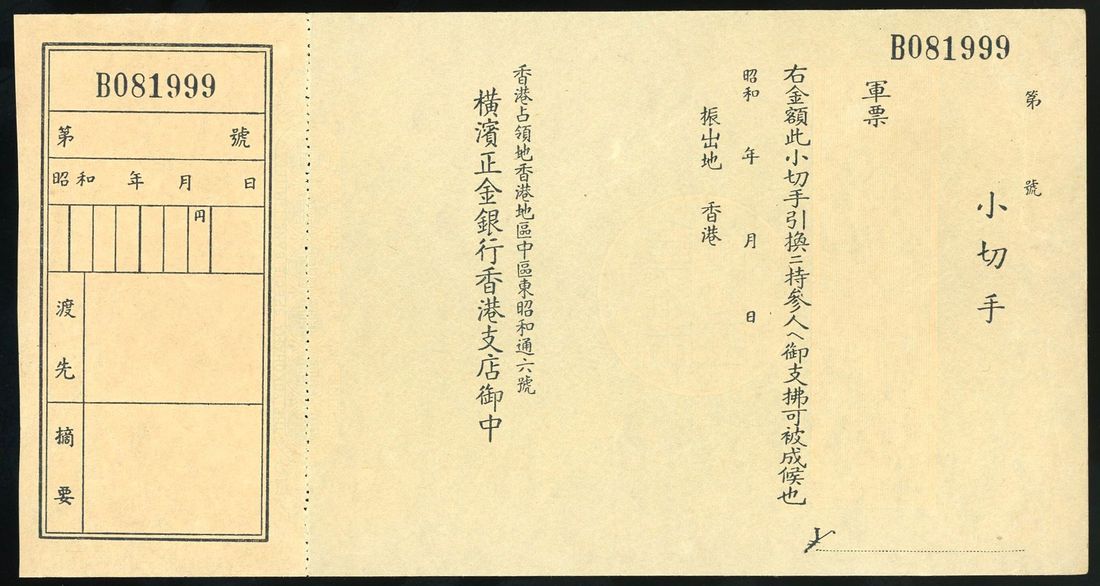 B081999
第 號
小切手
軍票
右金額此小切手引換ニ持參人ヘ御支拂可被成候也
昭和 年 月 日
振出地 香港
香港占領地香港地區中區東昭和通六號
橫濱正金銀行香港支店御中
¥
B081999
第 號
昭和 年 月 日
円
渡先
摘要